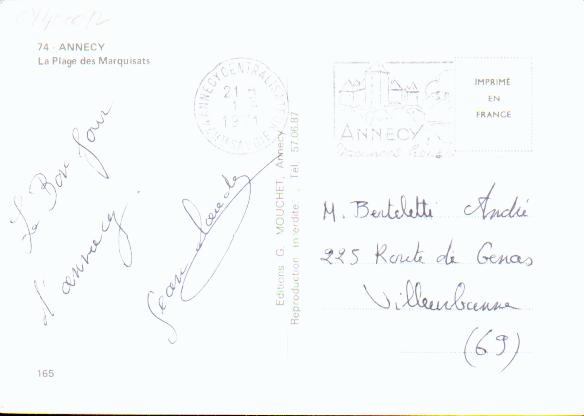 74 - ANNECY
La Plage des Marquisats
ANNECY CENTRALISATEUR
21 H
1971
ANNECY
IMPRIMÉ
EN
FRANCE
Le Bonjour
d'annecy.
Jean Claude
Editions G. MOUCHET, Annecy
Reproduction interdite. Tél. 57.06.87
M. Berteletti André
225 Route de Genas
Villeurbanne
(69)
165